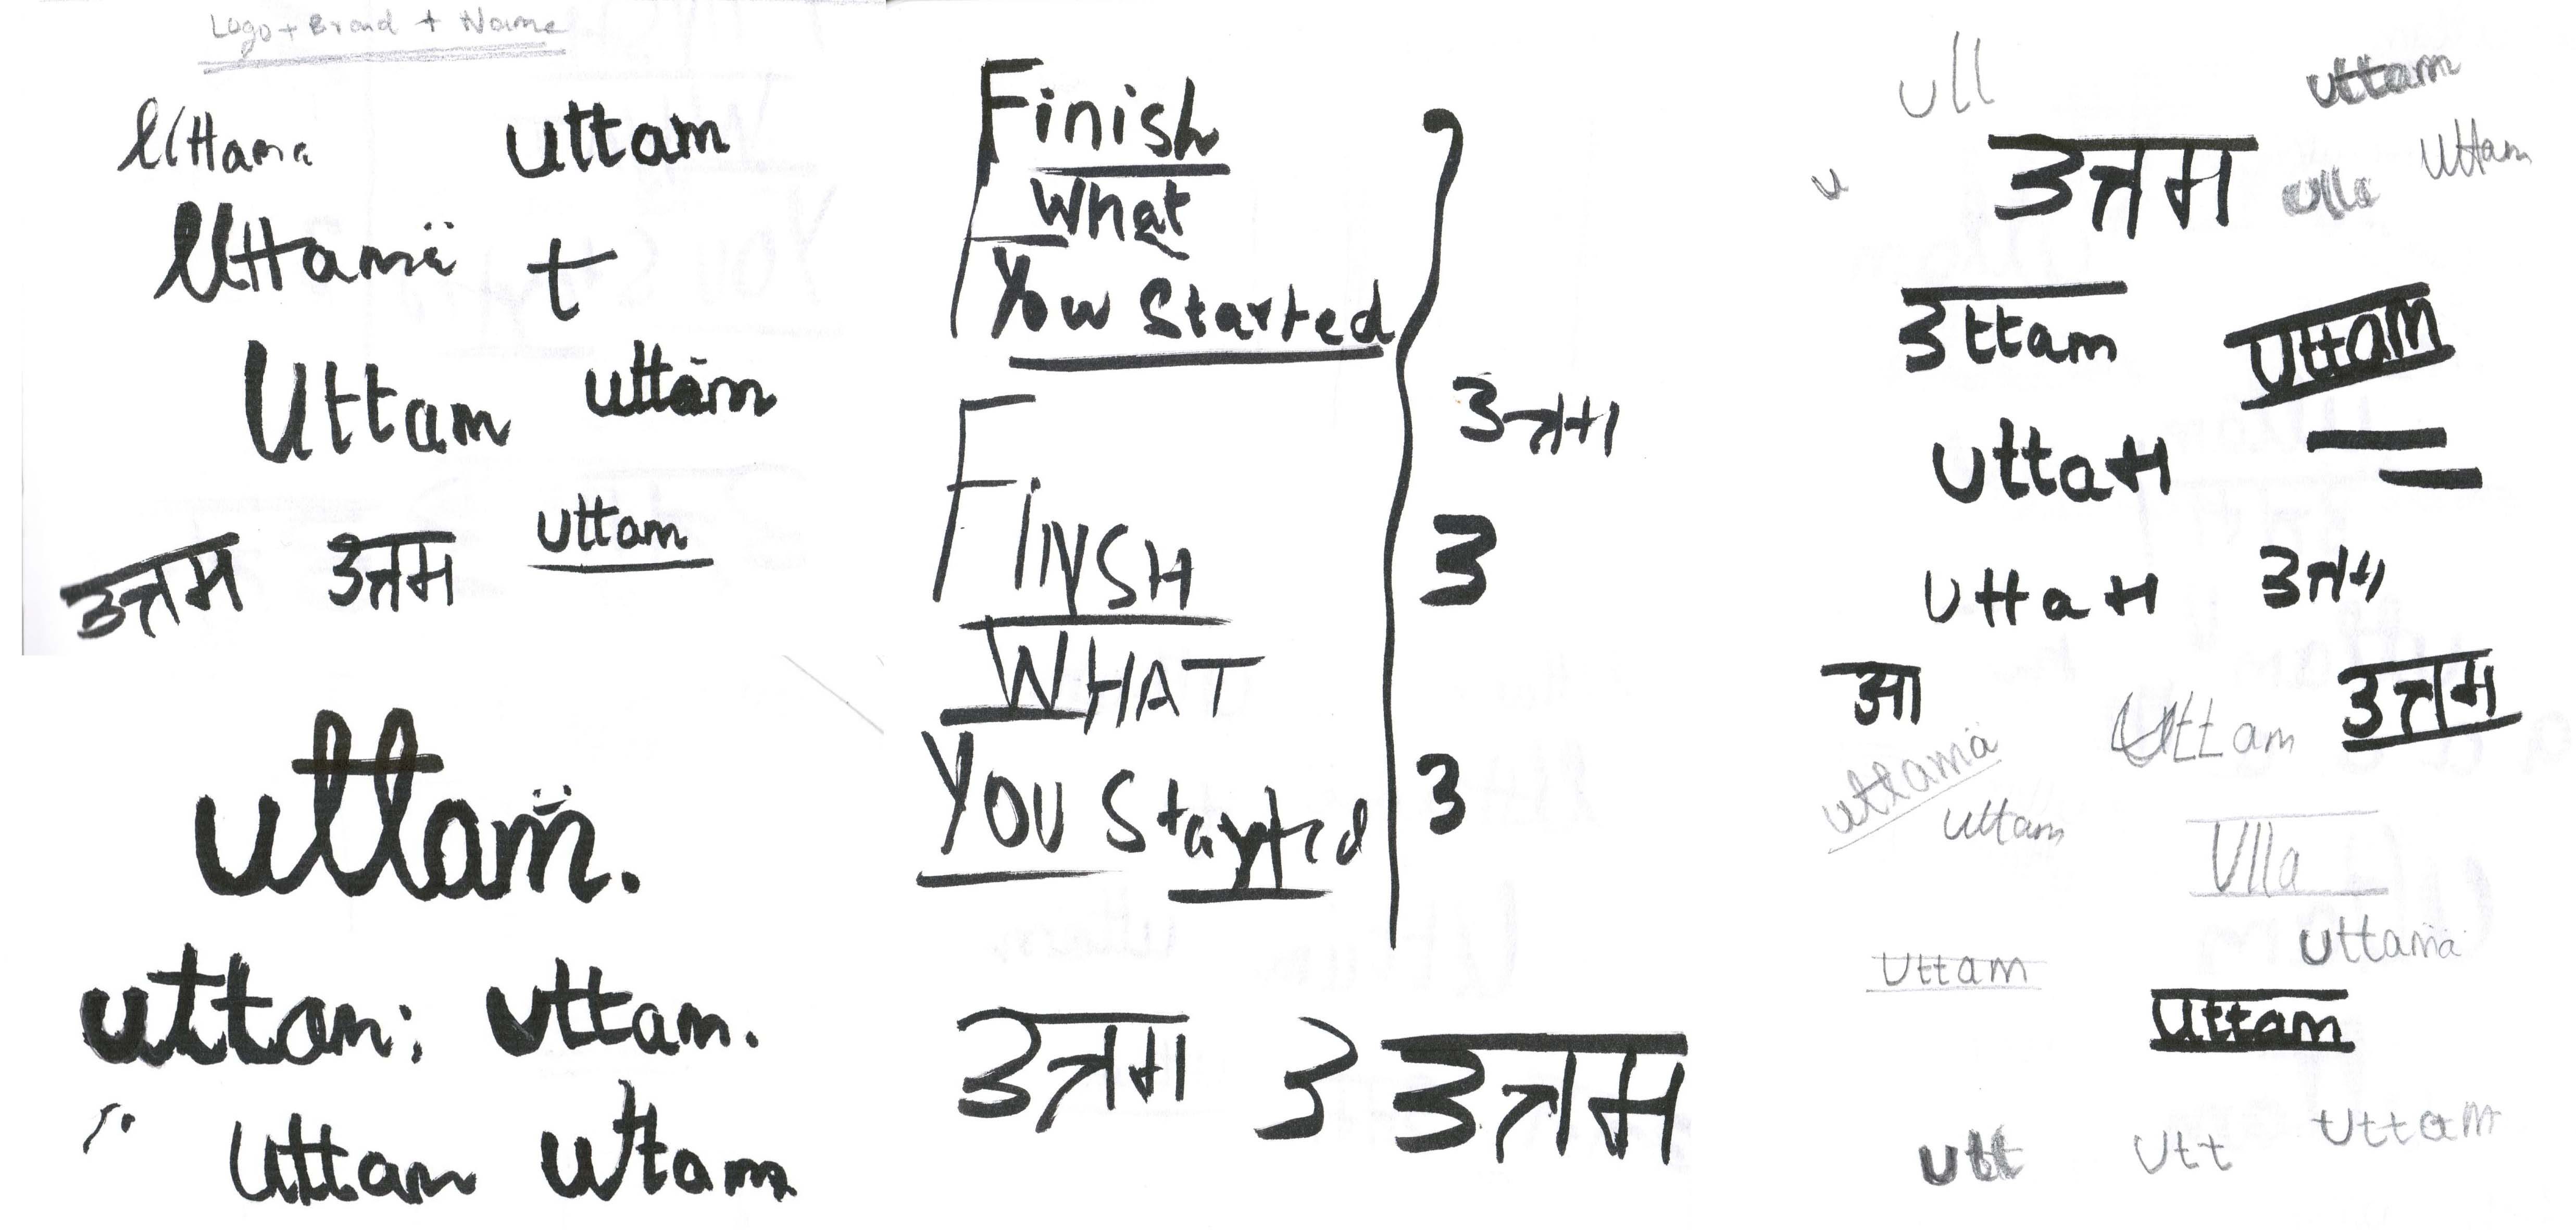 Logo + Brand + Name
Uttama uttam
Uttamä t
Uttam uttäm
उत्तम उत्तम uttam
uttam̈.
uttam; uttam.
Uttam Uttam
Finish
What
You Started
FINSH
WHAT
YOU Started
उत्तम
उ
उ
उत्तम उ उत्तम
ull uttam
उत्तम uttam
u ulla
उttam uttam
uttaम
uttaम उत्तम
आ उत्तम
uttam
uttama
uttam
Ulla
uttama
uttam
uttam
utt utt uttam